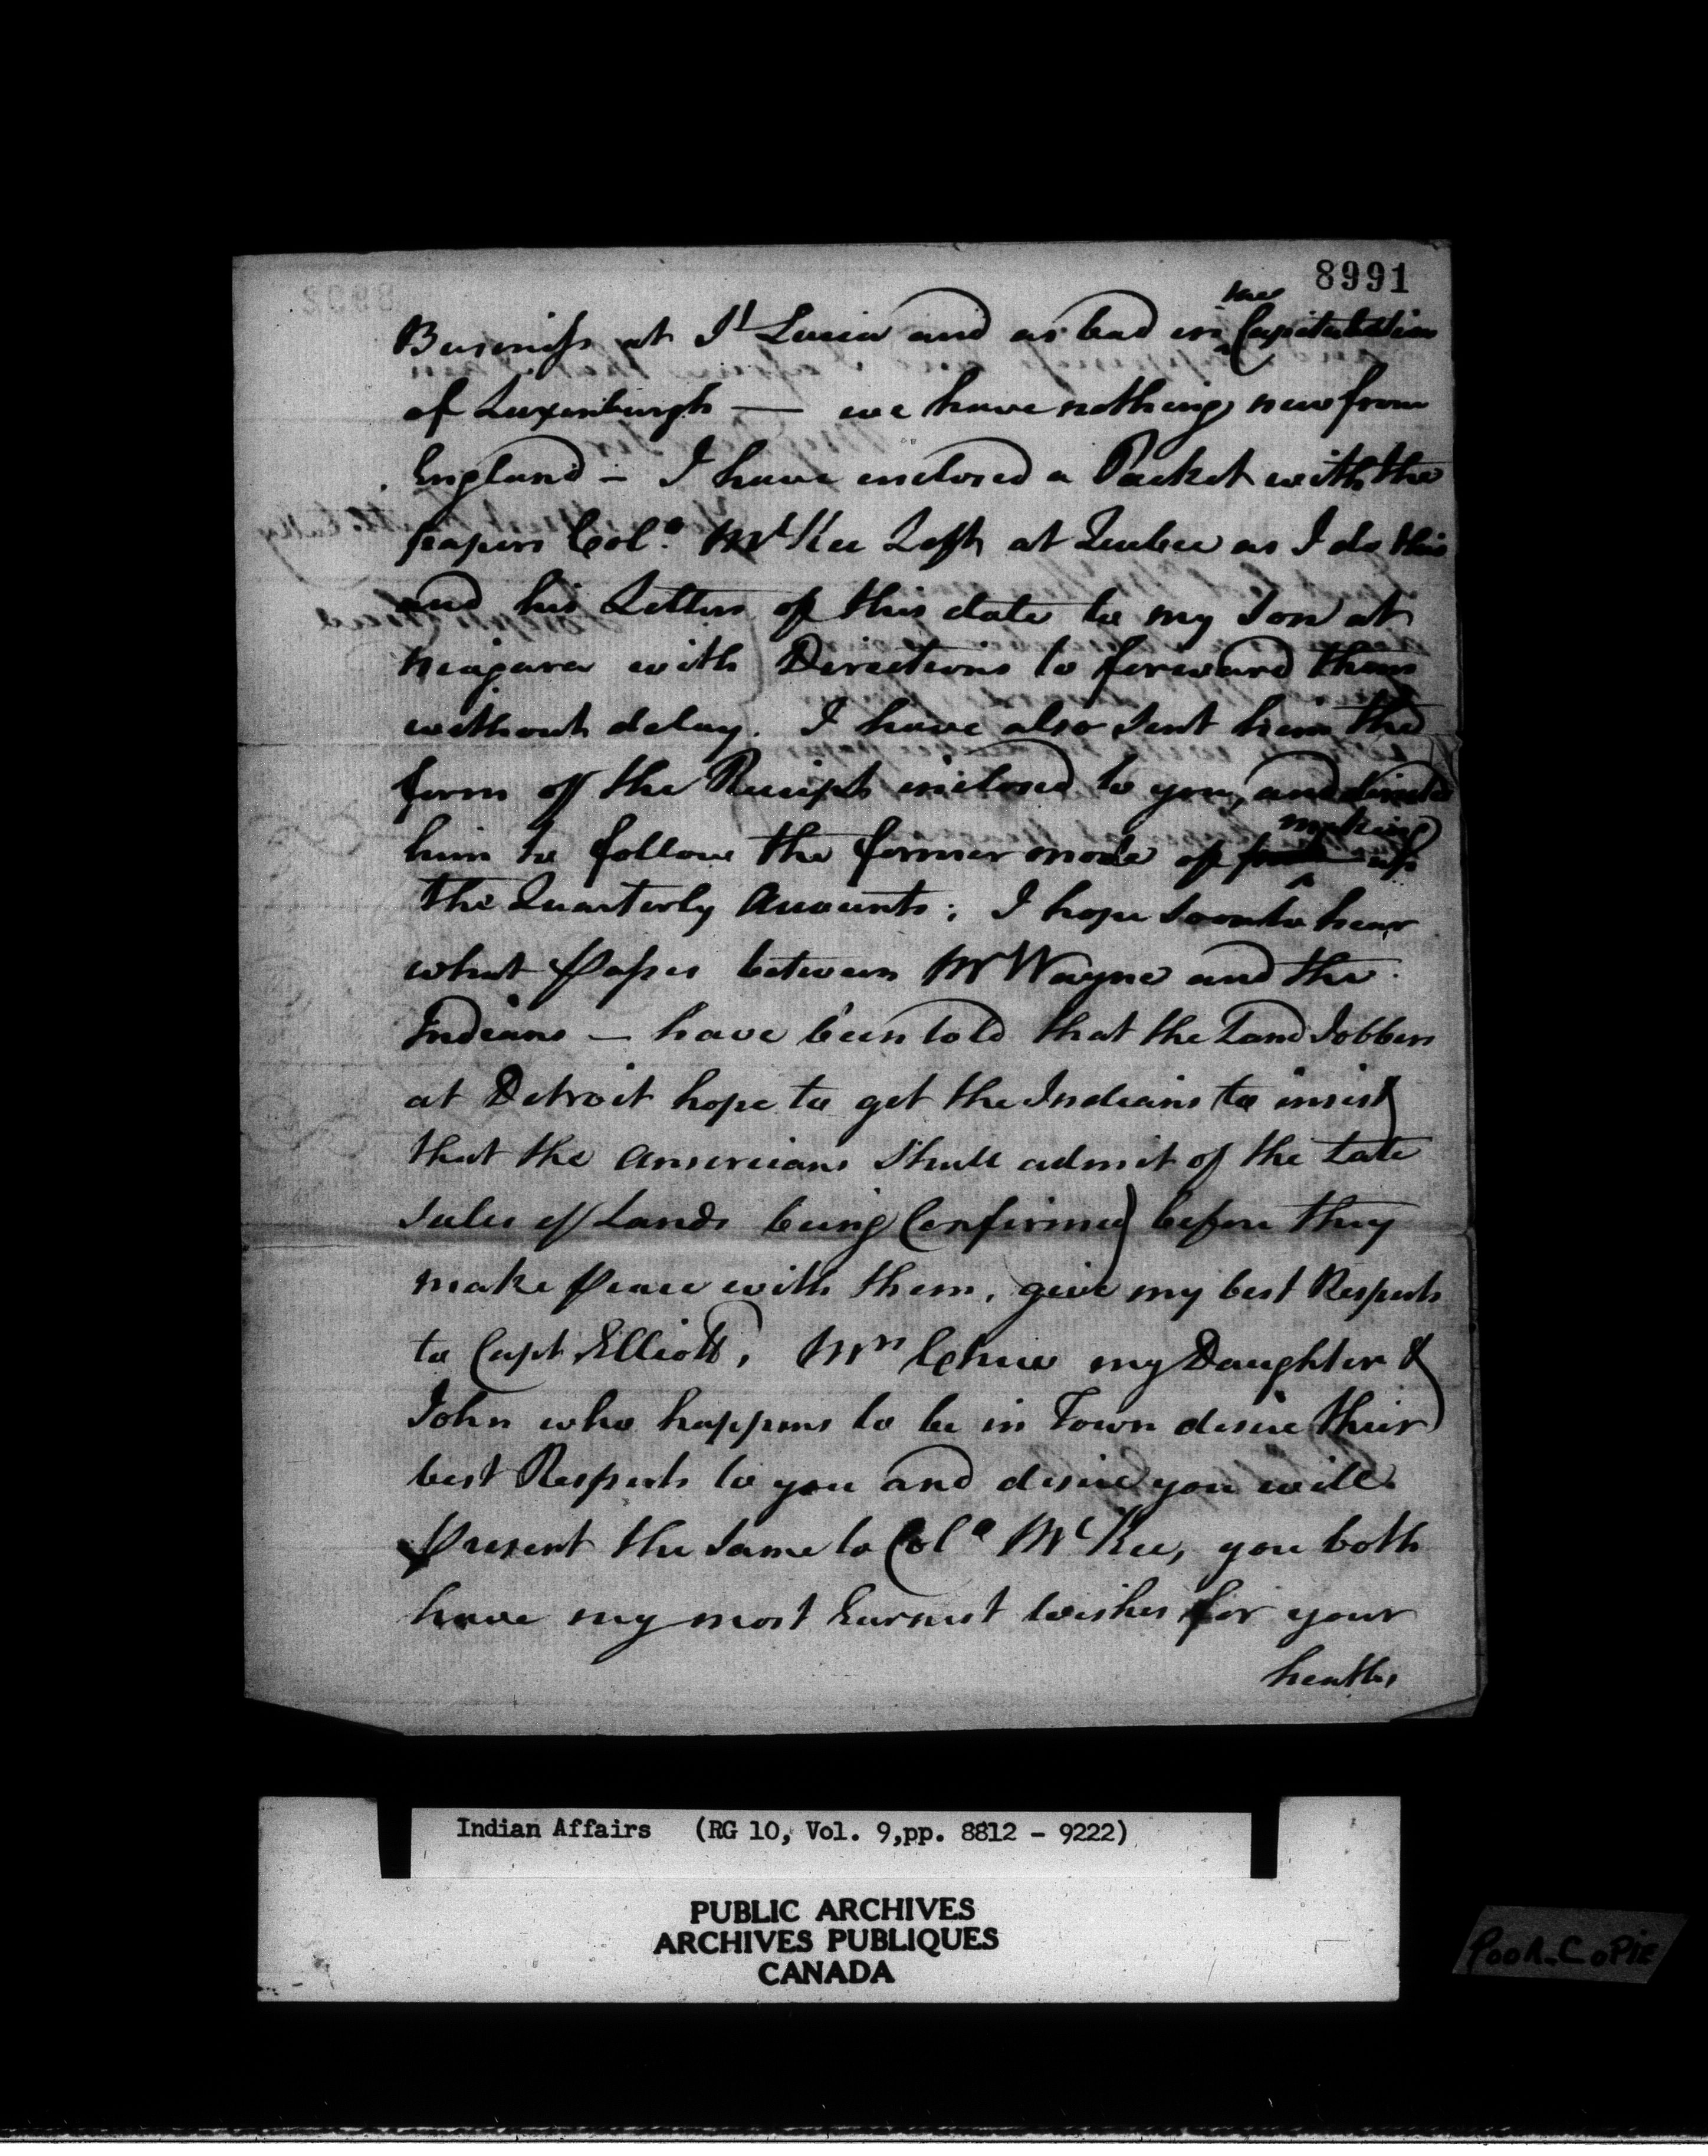 8991
Business at St Lucia and as bad in the Capitulation
of Luxenburgh — we have nothing new from
England – I have enclosed a Packet with the
papers Colo. McKee Left at Quebec as I do this
and his Letters of this date to my Son at
Niagara with Directions to forward them
without delay. I have also Sent him the
form of the Receipts inclosed to you, and directed
him to follow the former mode of making up
the Quarterly Accounts; I hope Soon to hear
what Passes between Mr Wayne and the
Indians — have been told that the Land Jobbers
at Detroit hope to get the Indians to insist
that the Americans Shall admit of the Late
Sales of Lands being Confirmed before they
make Peace with them, give my best Respects
to Capt Elliott, Mrs Chew my Daughter &
John who happens to be in Town desire their
best Respects to you and desire you will
Present the Same to Colo McKee, you both
have my most Earnest wishes for your
health,
Indian Affairs (RG 10, Vol. 9,pp. 8812 - 9222)
PUBLIC ARCHIVES
ARCHIVES PUBLIQUES
CANADA
POOR COPIE